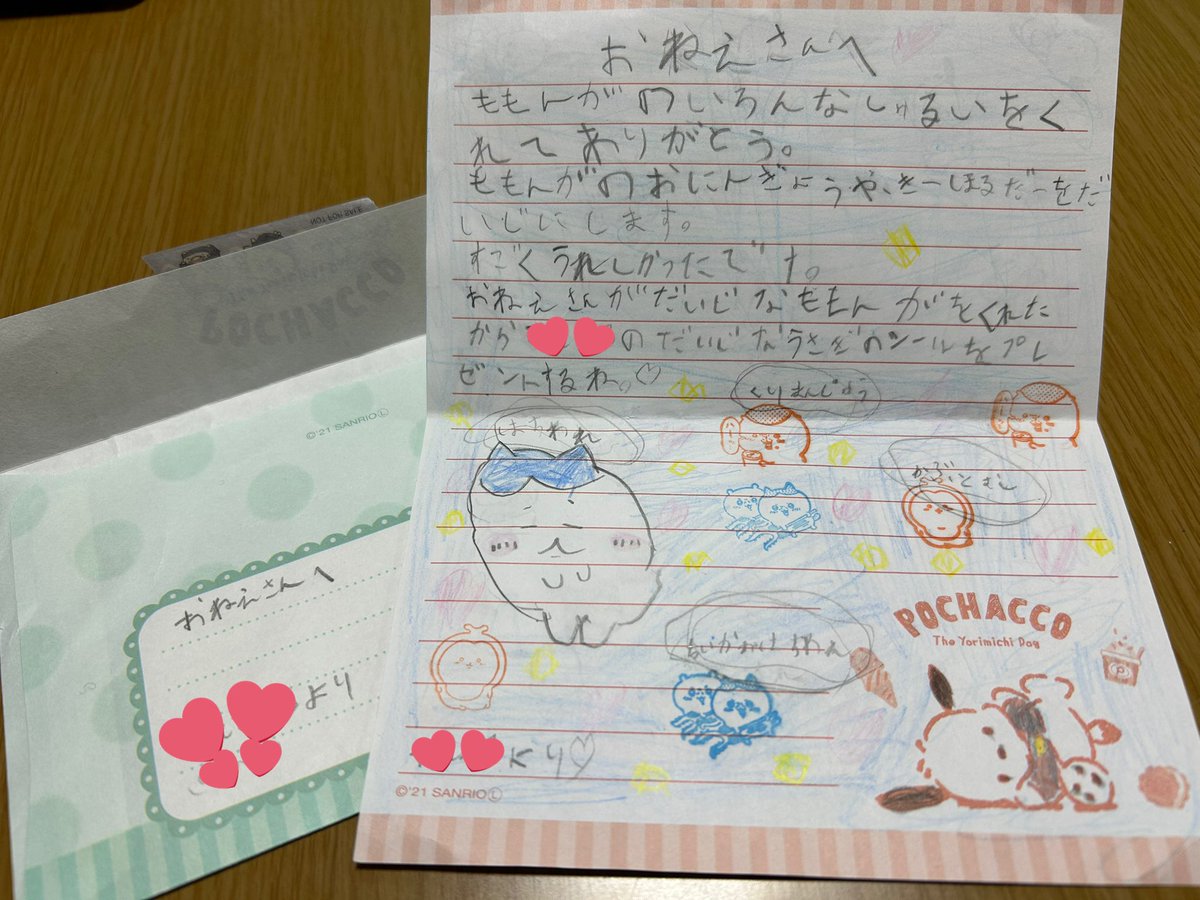 おねえさんへ
ももんがのいろんなしゅるいをく
れてありがとう。
ももんがのおにんぎょうや、きーほるだーをだ
いじにします。
すごくうれしかったです。
おねえさんがだいじなももんがをくれた
から
のだいじなうさぎのシールをプレ
ゼントするね。♡
くりまんじゅう
はちわれ
かぶとむし
POCHACCO
The Yorimichi Dog
より♡
©'21 SANRIO Ⓛ
NOT FOR SALE
POCHACCO
©'21 SANRIO Ⓛ
おねえさんへ
より